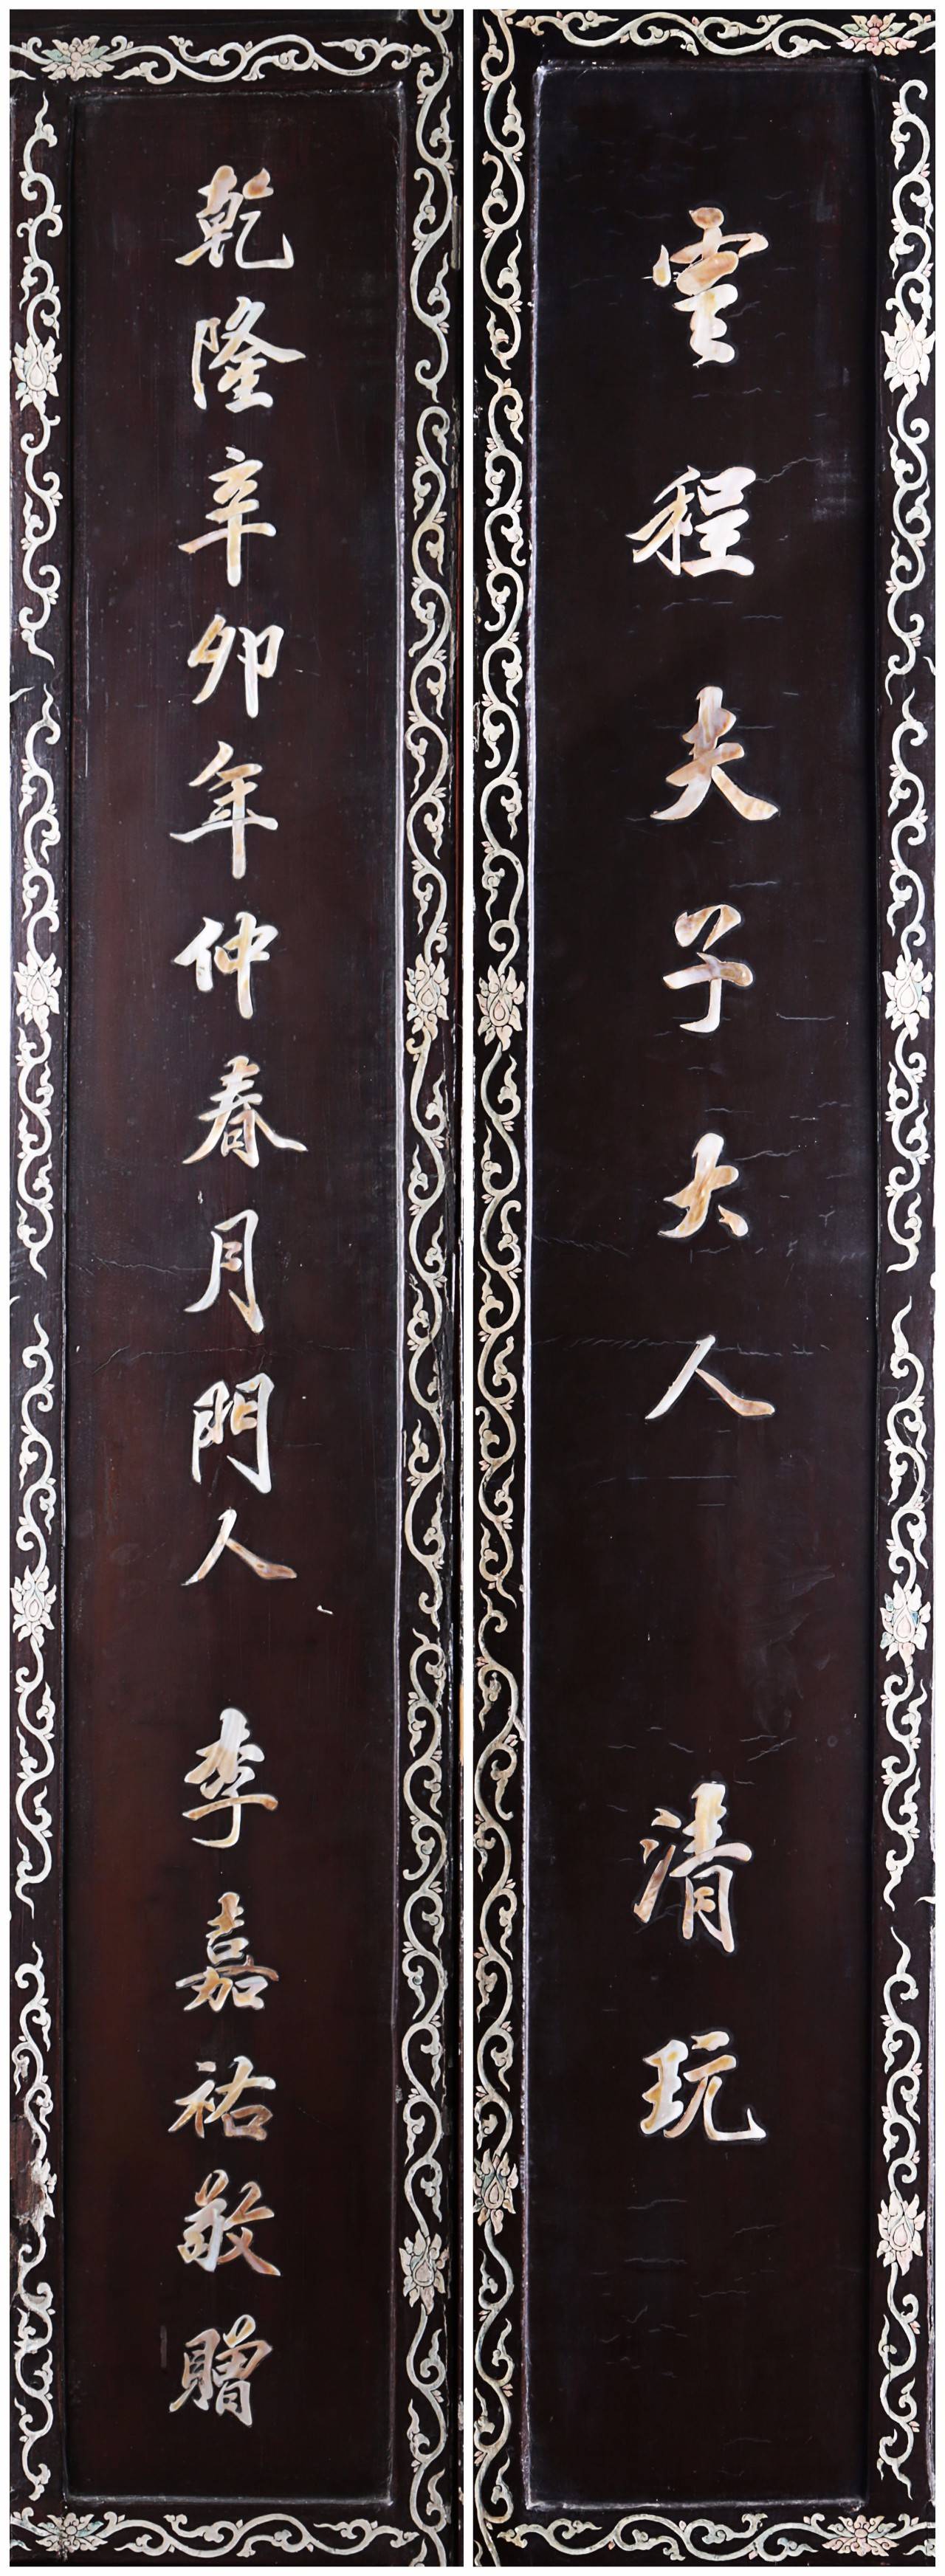 雲程夫子大人 清玩
乾隆辛卯年仲春月門人 李嘉祐敬贈